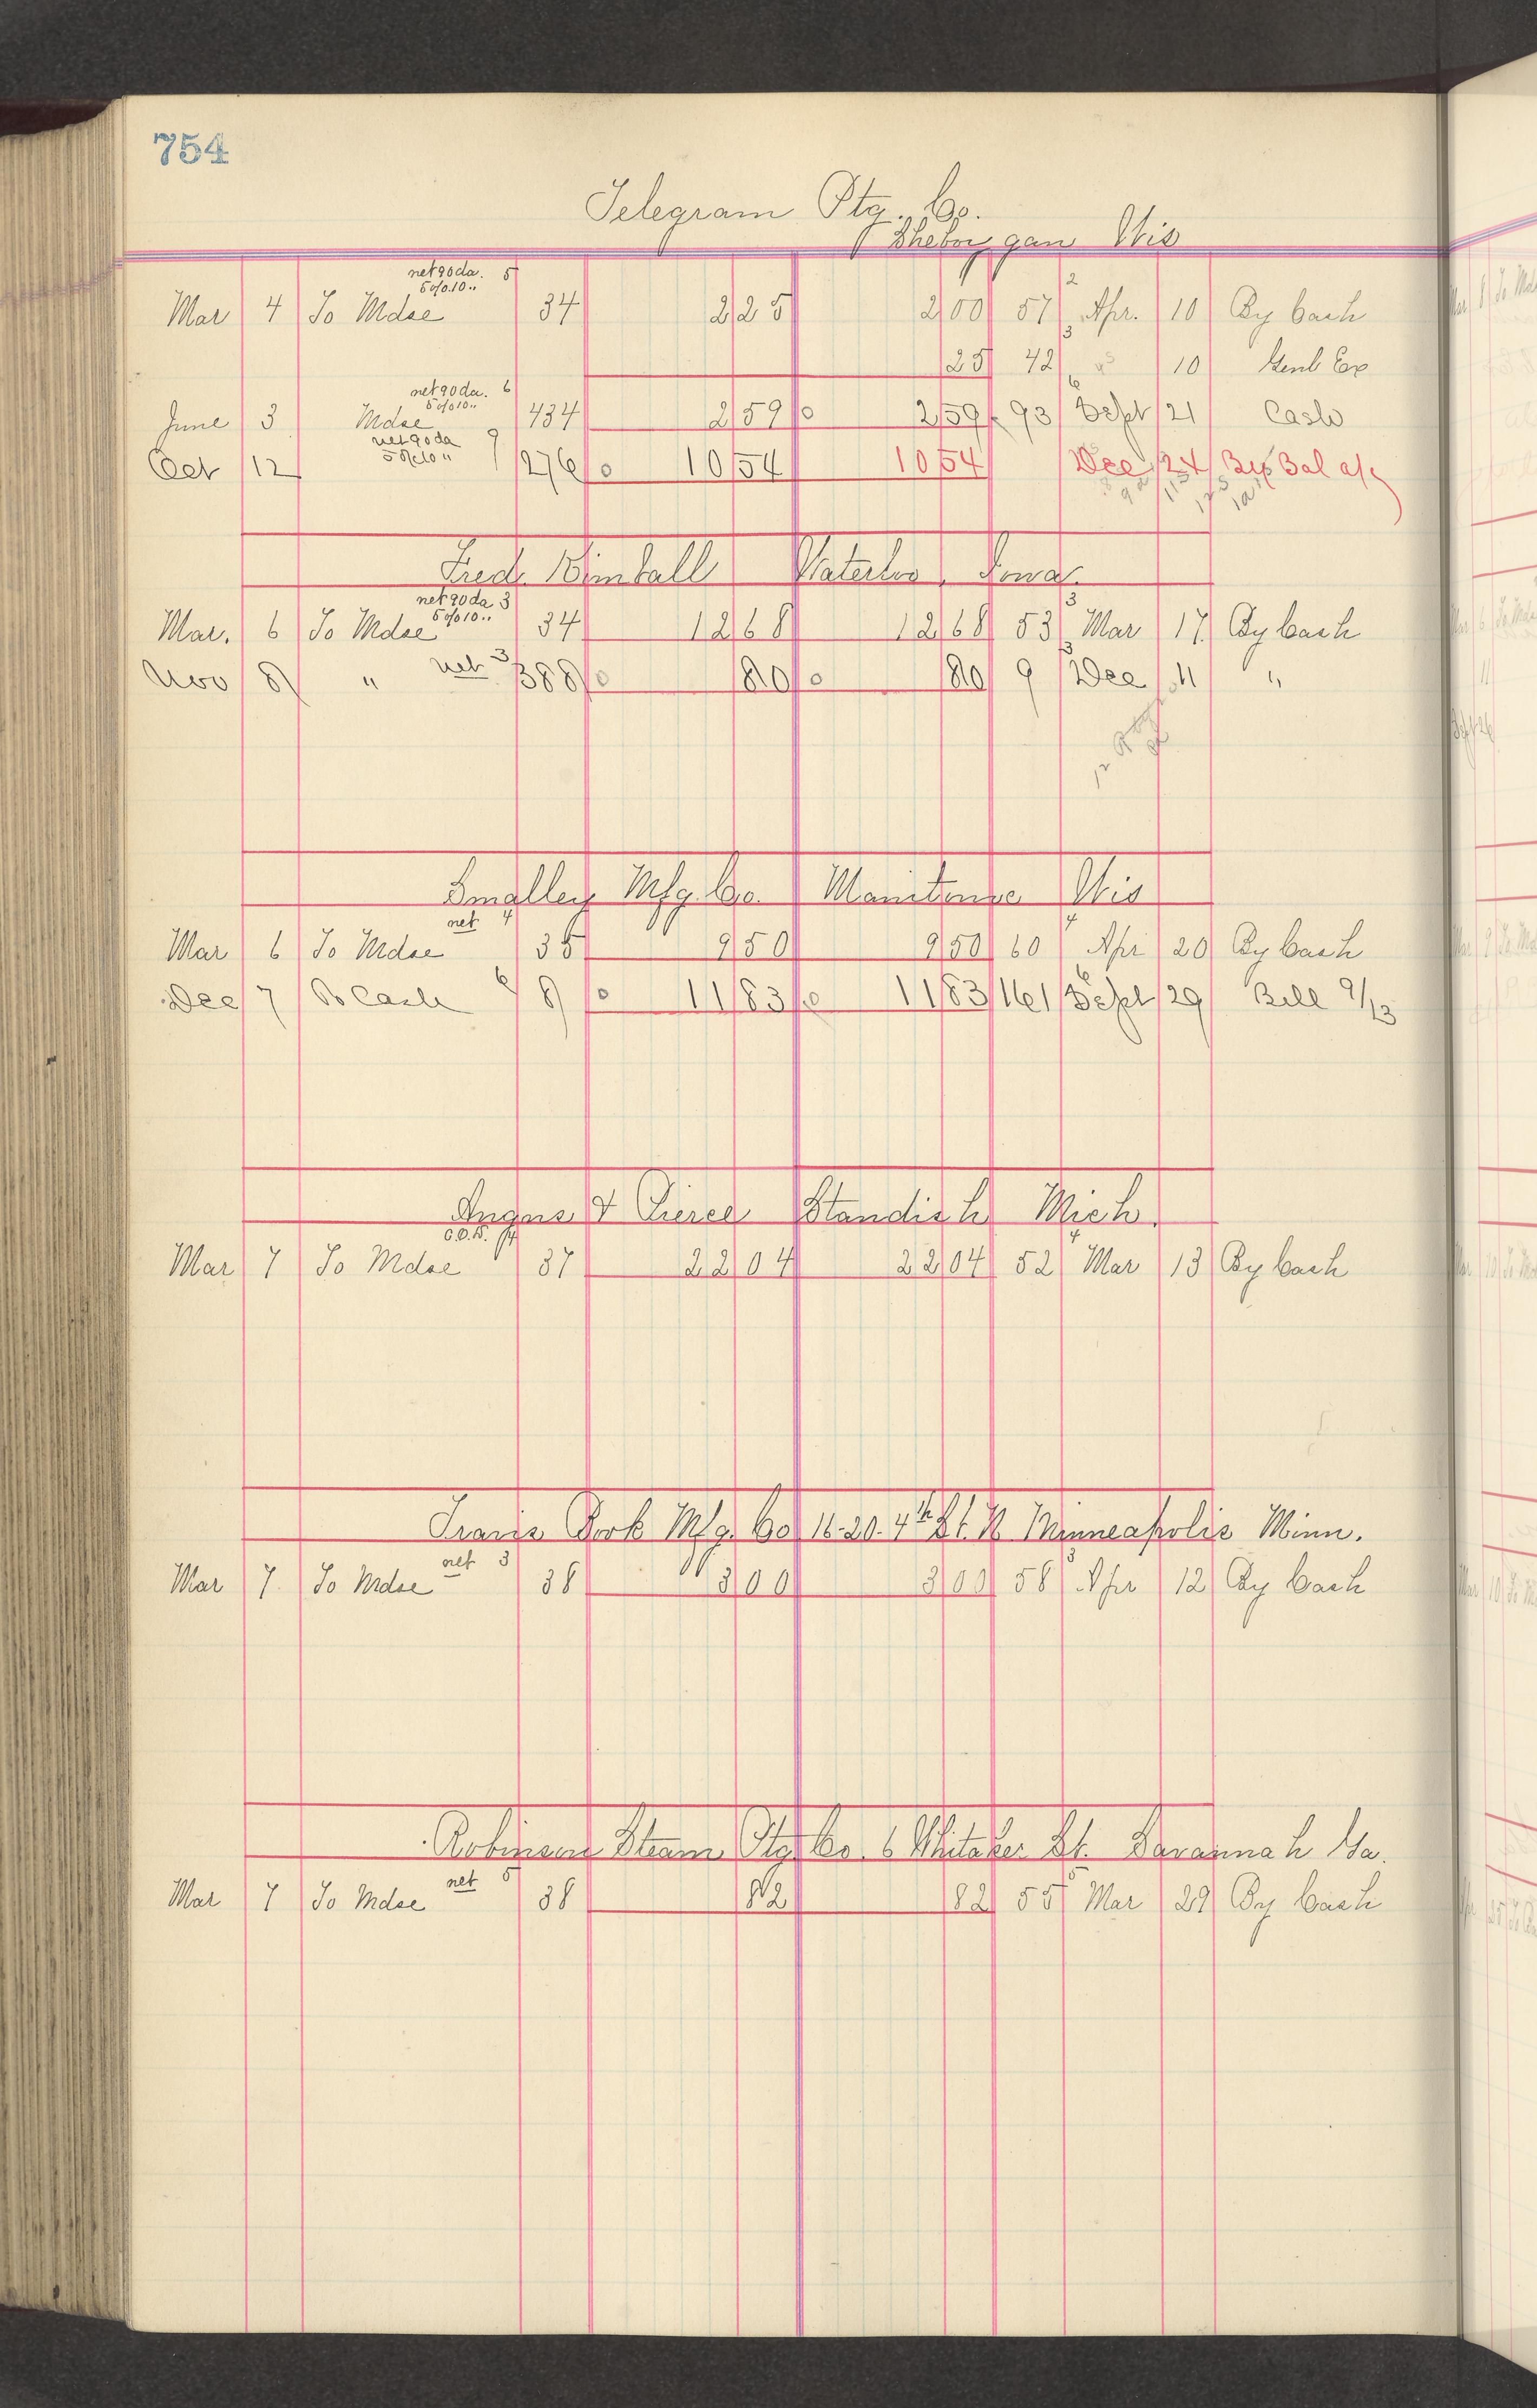 754
Telegram Ptg. Co.
Sheboygan Wis
net 90 da. 5
5 % 10 "
2
Mar 4 To Mdse 34 2 25 2 00 57 Apr. 10 By Cash
3
25 42 " 10 Genl Ex
net 90 da. 6
5 % 10 "
6
June 3 Mdse 434 2 59 2 59 93 Sept 21 Cash
net 90 da 9
5 % 10 "
Oct 12 276 10 54 10 54 Dec 24 By Bal a/c
Fred Kimball Waterloo, Iowa.
net 90 da 3
5 % 10 "
3
Mar. 6 To Mdse 34 12 68 12 68 53 Mar 17 By Cash
Nov 8 " net 3 388 80 80 9 Dec 11 "
Smalley Mfg. Co. Manitowoc Wis
net 4
4
Mar 6 To Mdse 35 9 50 9 50 60 Apr 20 By Cash
6
Dec 7 To Cash 6 8 11 83 11 83 161 Sept 29 Bill 9/13
Angus & Pierce Standish Mich.
C.O.D. 4
4
Mar 7 To Mdse 37 22 04 22 04 52 Mar 13 By Cash
Mfg. Co 16-20. 4th St. N Minneapolis Minn.
net 3
3
Mar 7. To Mdse 38 3 00 3 00 58 Apr 12 By Cash
Robinson Steam Ptg Co. 6 Whitaker St. Savannah Ga.
net 5
5
Mar 7 To Mdse 38 82 82 55 Mar 29 By Cash